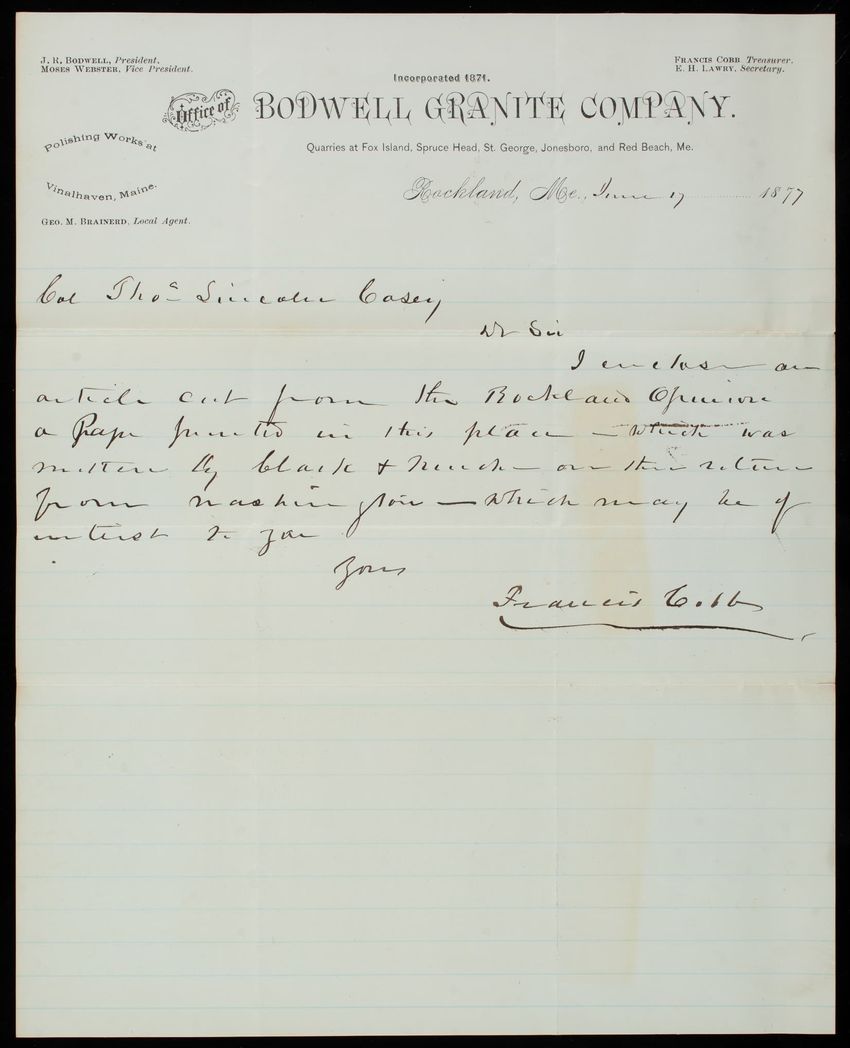 J. R. BODWELL, President.
MOSES WEBSTER, Vice President.
FRANCIS COBB Treasurer.
E. H. LAWRY, Secretary.
Incorporated 1871.
Office of BODWELL GRANITE COMPANY.
Polishing Works at
Vinalhaven, Maine.
GEO. M. BRAINERD, Local Agent.
Quarries at Fox Island, Spruce Head, St. George, Jonesboro, and Red Beach, Me.
Rockland, Me., June 17 1877
Col Thos Lincoln Casey
Dr Sir
I enclose an
article cut from the Rockland Opinion
a Paper printed in this place – which was
written by Clark & – on their return
from Washington – which may be of
interest to you
Yours
Francis Cobb